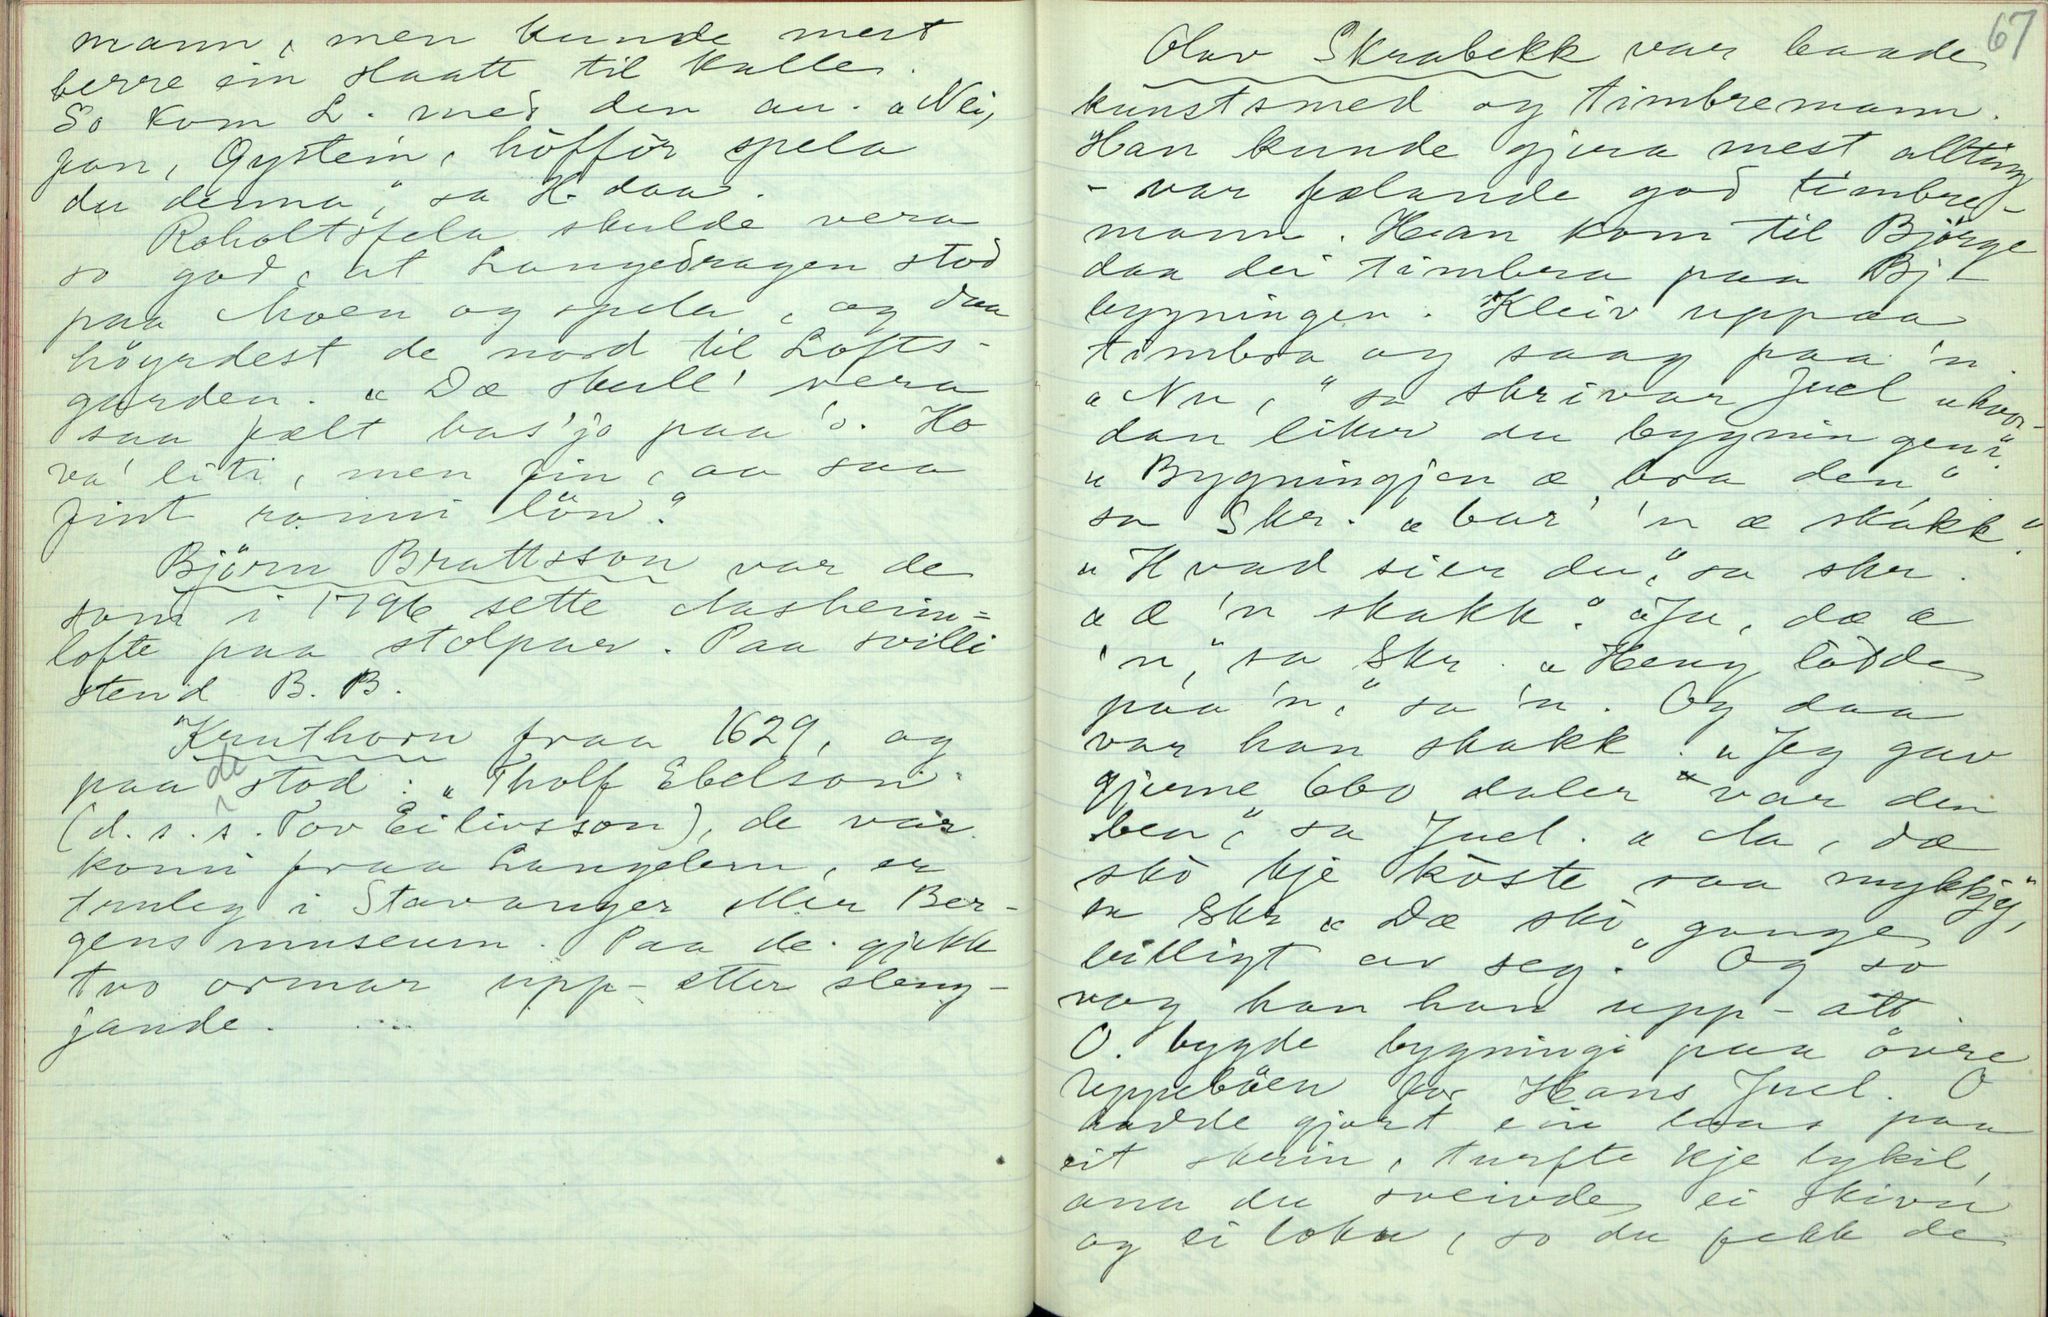 mann, men kunde mest
berre ein slaatt til Kalle.
So kom L. med den au. „Nei,
far, Øystein, höfför spela
du denna," sa H. daa.
Roholtsfela skulde vera
so god, at Langedragen stod
paa Moen og spela, og daa
höyrdest de nord til Lofts-
garden. „Dæ skull' vera
saa fælt bas'jo paa 'o. Ho
va' liti, men fin, aa saa
fint ronni lön."
Björn Brattsson var de
som i 1796 sette Aasheim-
lofte paa stolpar. Paa svilli
stend B. B.
Kruthorn fraa 1629, og
paa de stod: „Tholf Ebelson"
(d. s. s. Tov Eilivsson), de var
komi fraa Langelem, er
truleg i Stavanger eller Ber-
gens museum. Paa de gjekk
tvo ormar upp-etter sleng-
jande.
67
Olav Skrabekk var baade
kunstsmed og timbremann.
Han kunde gjera mest allting
- var fælande god timbre-
mann. Han kom til Björge
daa dei timbra paa Bj-
bygningen. Kleiv uppaa
timbra og saag paa 'n.
„Nu," sa skrivar Juel „hvor-
dan liker du bygningen?"
„Bygningjen æ bra den"
sa Skr. „bar' 'n æ skakk."
„Hvad sier du," sa skr.
„Æ 'n skakk." „Ju, dæ æ
'n," sa Skr. „Heng lodde
paa 'n," sa 'n. Og daa
var han skakk. „Jeg gav
gjerne 600 daler var den
ben," sa Juel. „Aa, dæ
sko kje koste saa mykkjy,"
sa Skr „Dæ sko gange
billigt av seg." Og so
vog han han upp-att.
O. bygde bygningi paa övre
Uppeböen for Hans Juel. O
hadde gjort ein laas paa
eit skrin, turfte kje lykil,
ana du sveivde ei skivu
og ei loku, so du fekk de